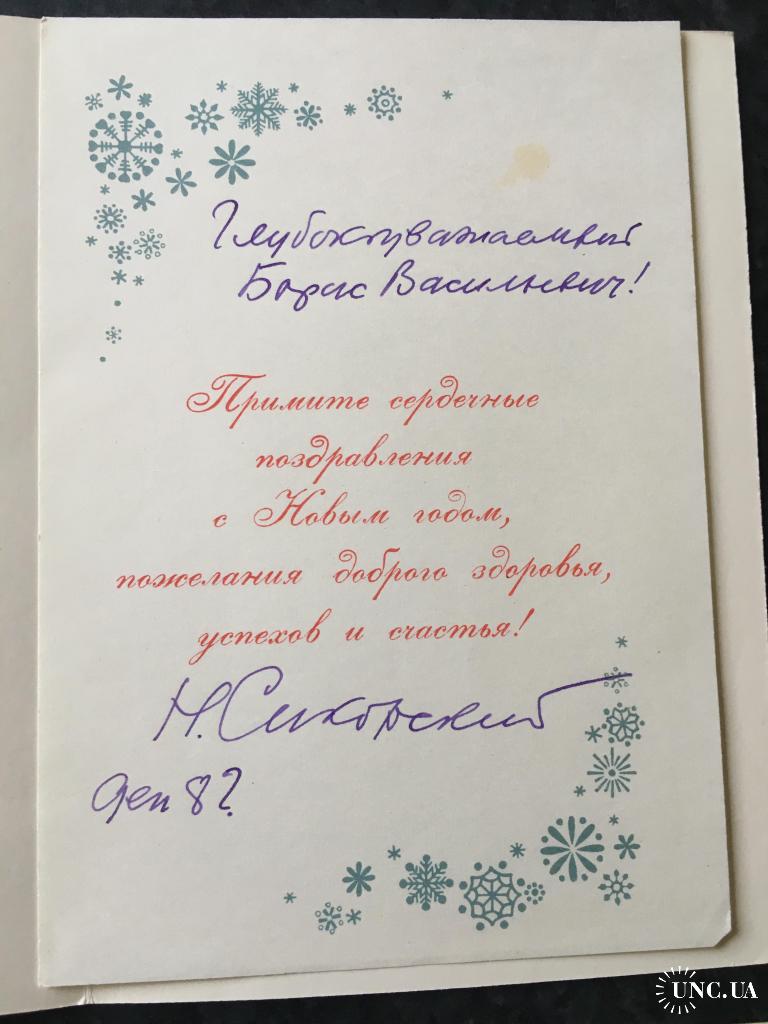 Глубокоуважаемый
Борис Васильевич!
Примите сердечные
поздравления
с Новым годом,
пожелания доброго здоровья,
успехов и счастья!
Н. Сикорский
дек 82.
UNC.UA